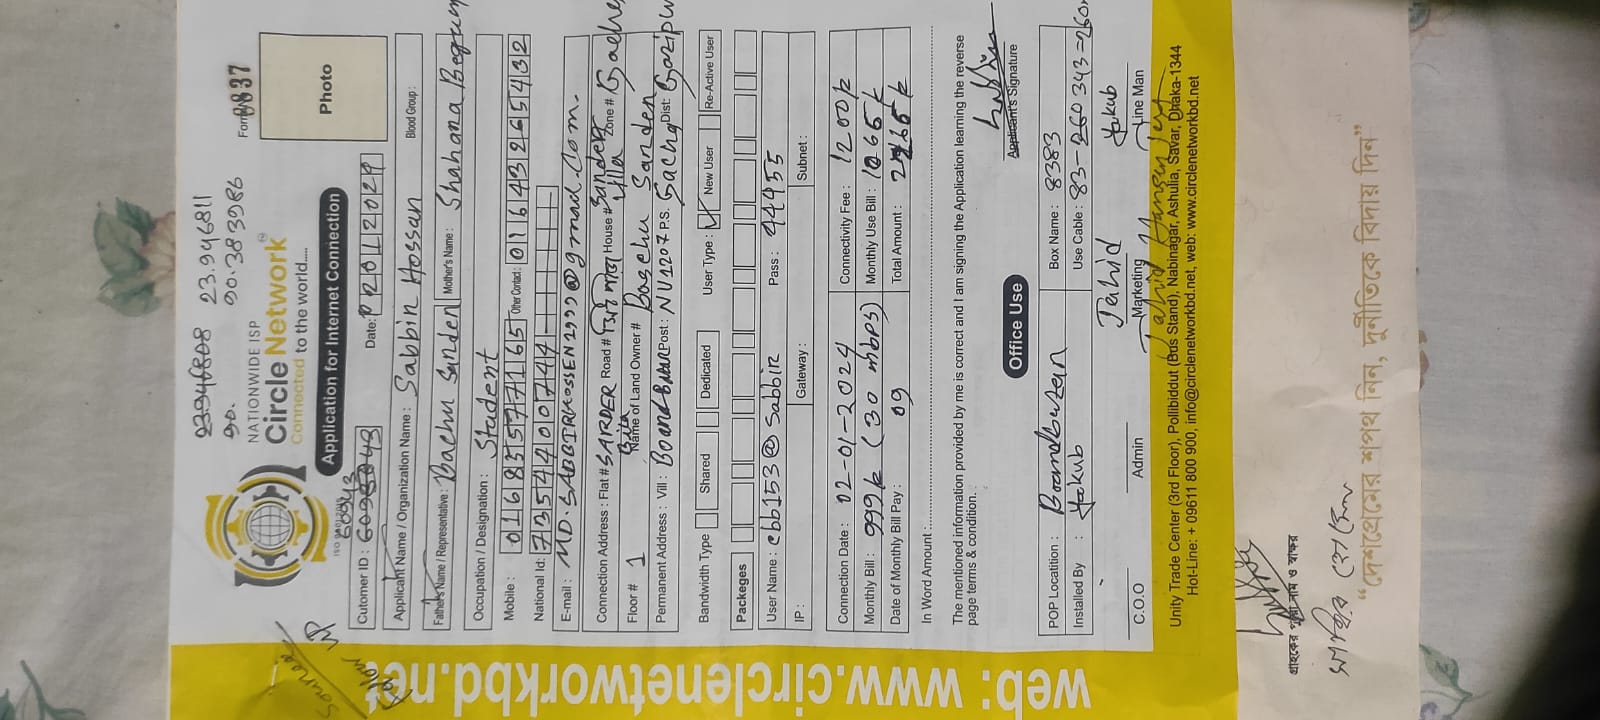 23.946811
90.383986
Form
0837
NATIONWIDE ISP
Circle Network
Connected to the world.....
Application for Internet Connection
Photo
Cutomer ID :
60943
Date:
02 01 2024
Applicant Name / Organization Name : Sabbin Hossan
Blood Group :
Father's Name / Representative :
Mother's Name : Shahana Begum
Occupation / Designation : Student
Mobile : 01685777165 Other Contact: 01643265432
National Id: 7354400744
E-mail : MD.SABBIRHOSSEN2999@gmail.com.
Connection Address : Flat # SARDER Road # House # Villa Zone #
Floor # 1 Name of Land Owner #
Permanent Address : Vill : Board Bazar Post : NU 1207 P.S. Gacha Dist: Gazipur
Bandwidth Type Shared Dedicated User Type : New User Re-Active User
Packeges
User Name : cbb153@sabbir Pass : 44455
IP : Gateway : Subnet :
Connection Date : 02-01-2024 Connectivity Fee : 1200/=
Monthly Bill : 999/= (30 mbps) Monthly Use Bill : 1065/=
Date of Monthly Bill Pay : 09 Total Amount : 2265/=
In Word Amount :
The mentioned information provided by me is correct and I am signing the Application learning the reverse
page terms & condition.
Applicant's Signature
Office Use
POP Locatition : Box Name : 8383
Installed By : Yakub Use Cable : 83-260 343=260m
Jahid Yakub
C.O.O Admin Marketing Line Man
Unity Trade Center (3rd Floor), Pollibiddut (Bus Stand), Nabinagar, Ashulia, Savar, Dhaka-1344
Hot-Line: + 09611 800 900, info@circlenetworkbd.net, web: www.circlenetworkbd.net
web: www.circlenetworkbd.net
গ্রাহকের পুরো নাম ও স্বাক্ষর
“দেশপ্রেমের শপথ নিন, দুর্নীতিকে বিদায় দিন”